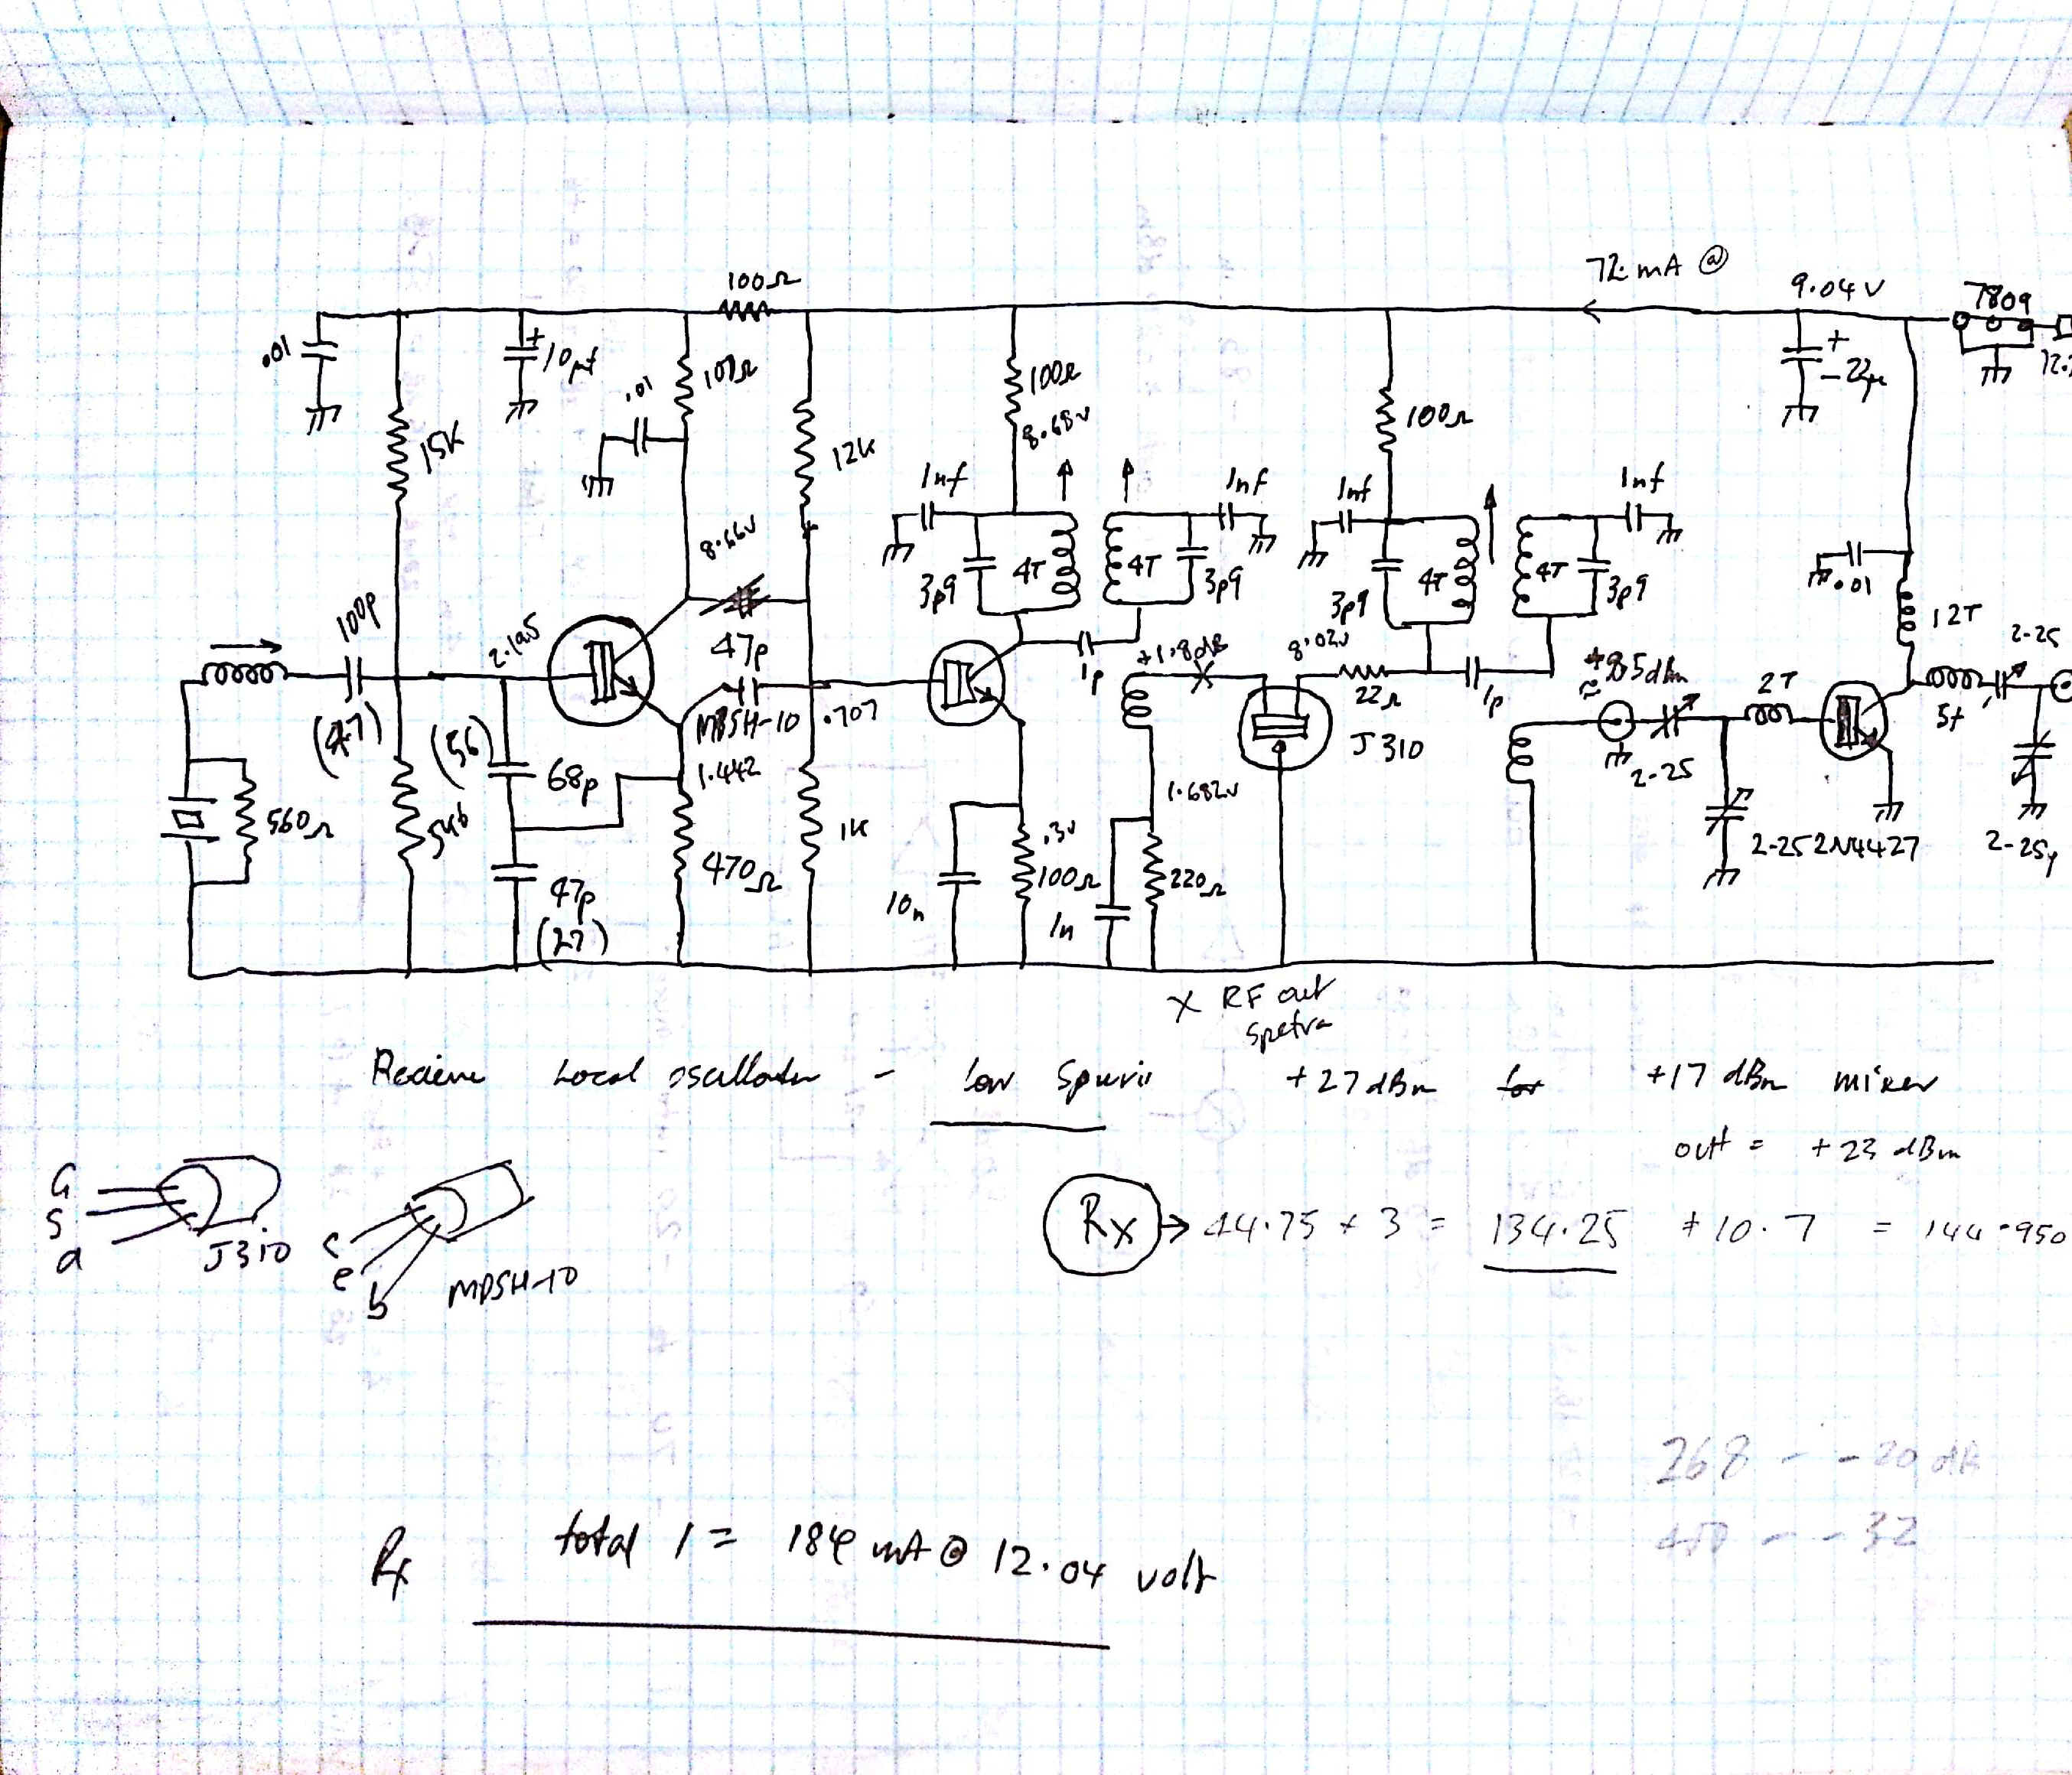 72 mA @
9.04 V
7809
100Ω
.01
10µf
.01
100Ω
100Ω
8.68v
100Ω
22µ
15K
12K
1nf
1nf
1nf
1nf
8.66v
3p9
4T
4T
3p9
3p9
4T
4T
3p9
.01
12T
100p
2.195
47p
1p
+1.8dB
8.02v
22Ω
1p
2T
2-25
5t
(47)
(56)
68p
MPSH-10
.707
J310
2-25
1.442
1.682v
560Ω
5K6
470Ω
1K
.3v
100Ω
220Ω
2-25
2N4427
2-25p
47p
(27)
10n
1n
X RF out
Spetra
Recieve Local oscillator - low Spurii +27 dBm for +17 dBm mixer
out = +23 dBm
G
S
d
J310
c
e
b
MPSH-10
Rx → 44.75 × 3 = 134.25 + 10.7 = 144.950
268 - -20 dB
- -32
Rx total I = 184 mA @ 12.04 volt